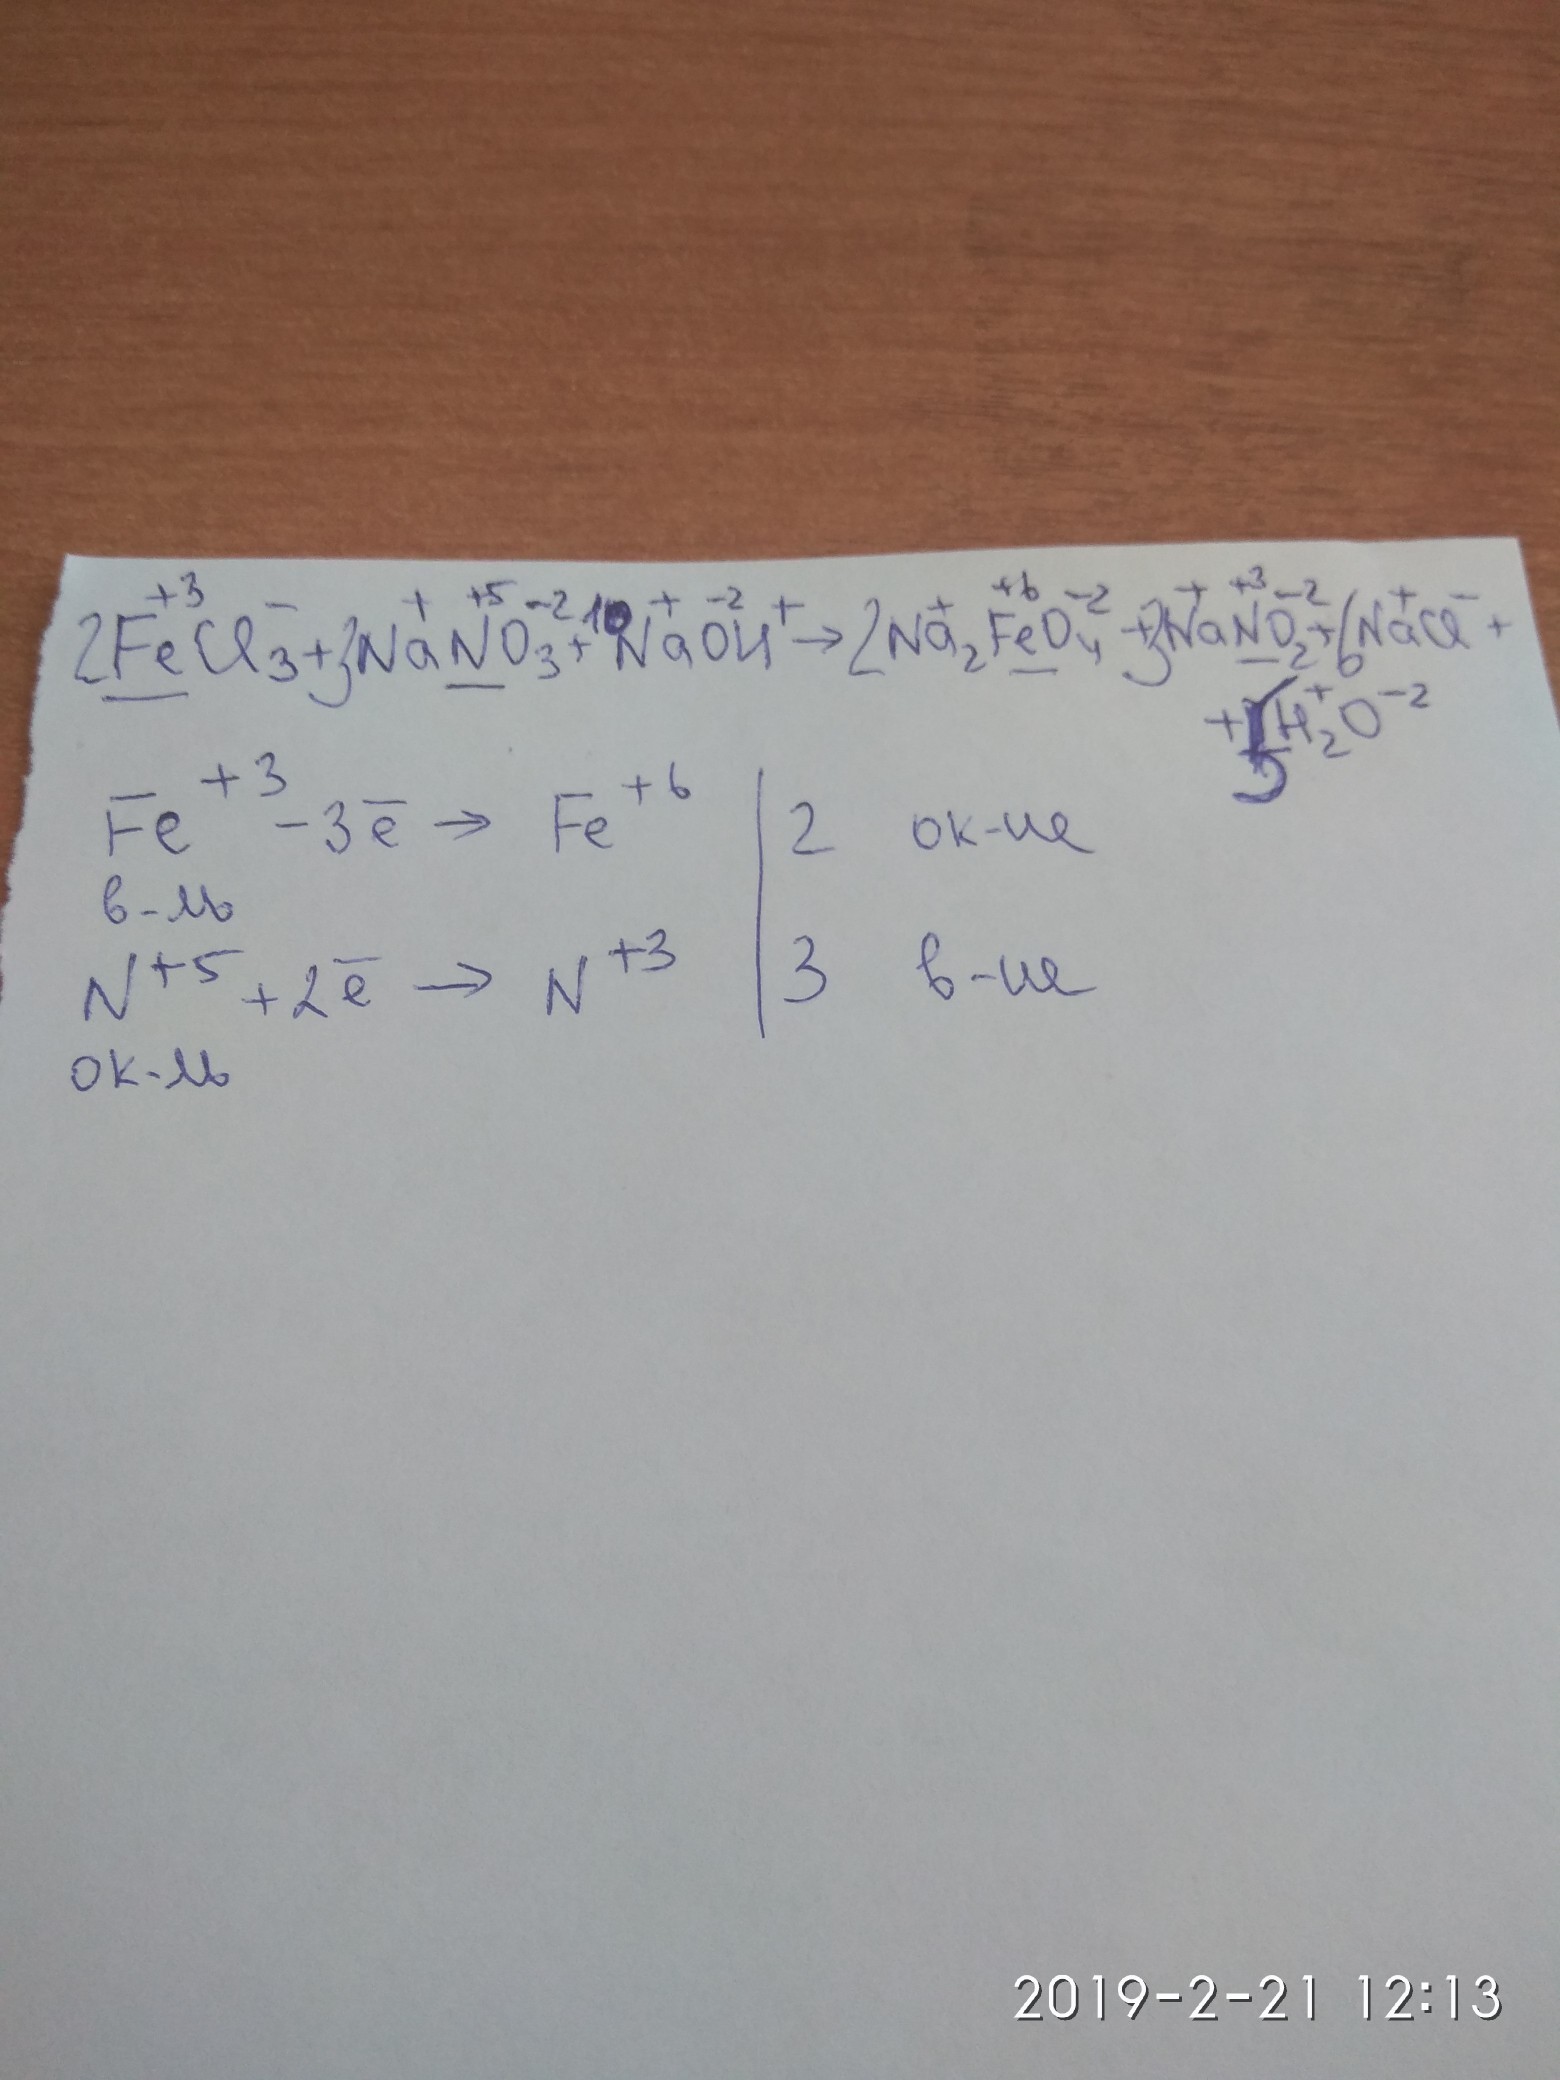 2Fe⁺³Cl⁻₃+3Na⁺N⁺⁵O⁻²₃+10Na⁺O⁻²H⁺→2Na⁺₂Fe⁺⁶O⁻²₄+3Na⁺N⁺³O⁻²₂+6Na⁺Cl⁻+
+5H⁺₂O⁻²
Fe⁺³-3ē→Fe⁺⁶|2 ок-ие
в-ль
N⁺⁵+2ē→N⁺³|3 в-ие
ок-ль
2019-2-21 12:13